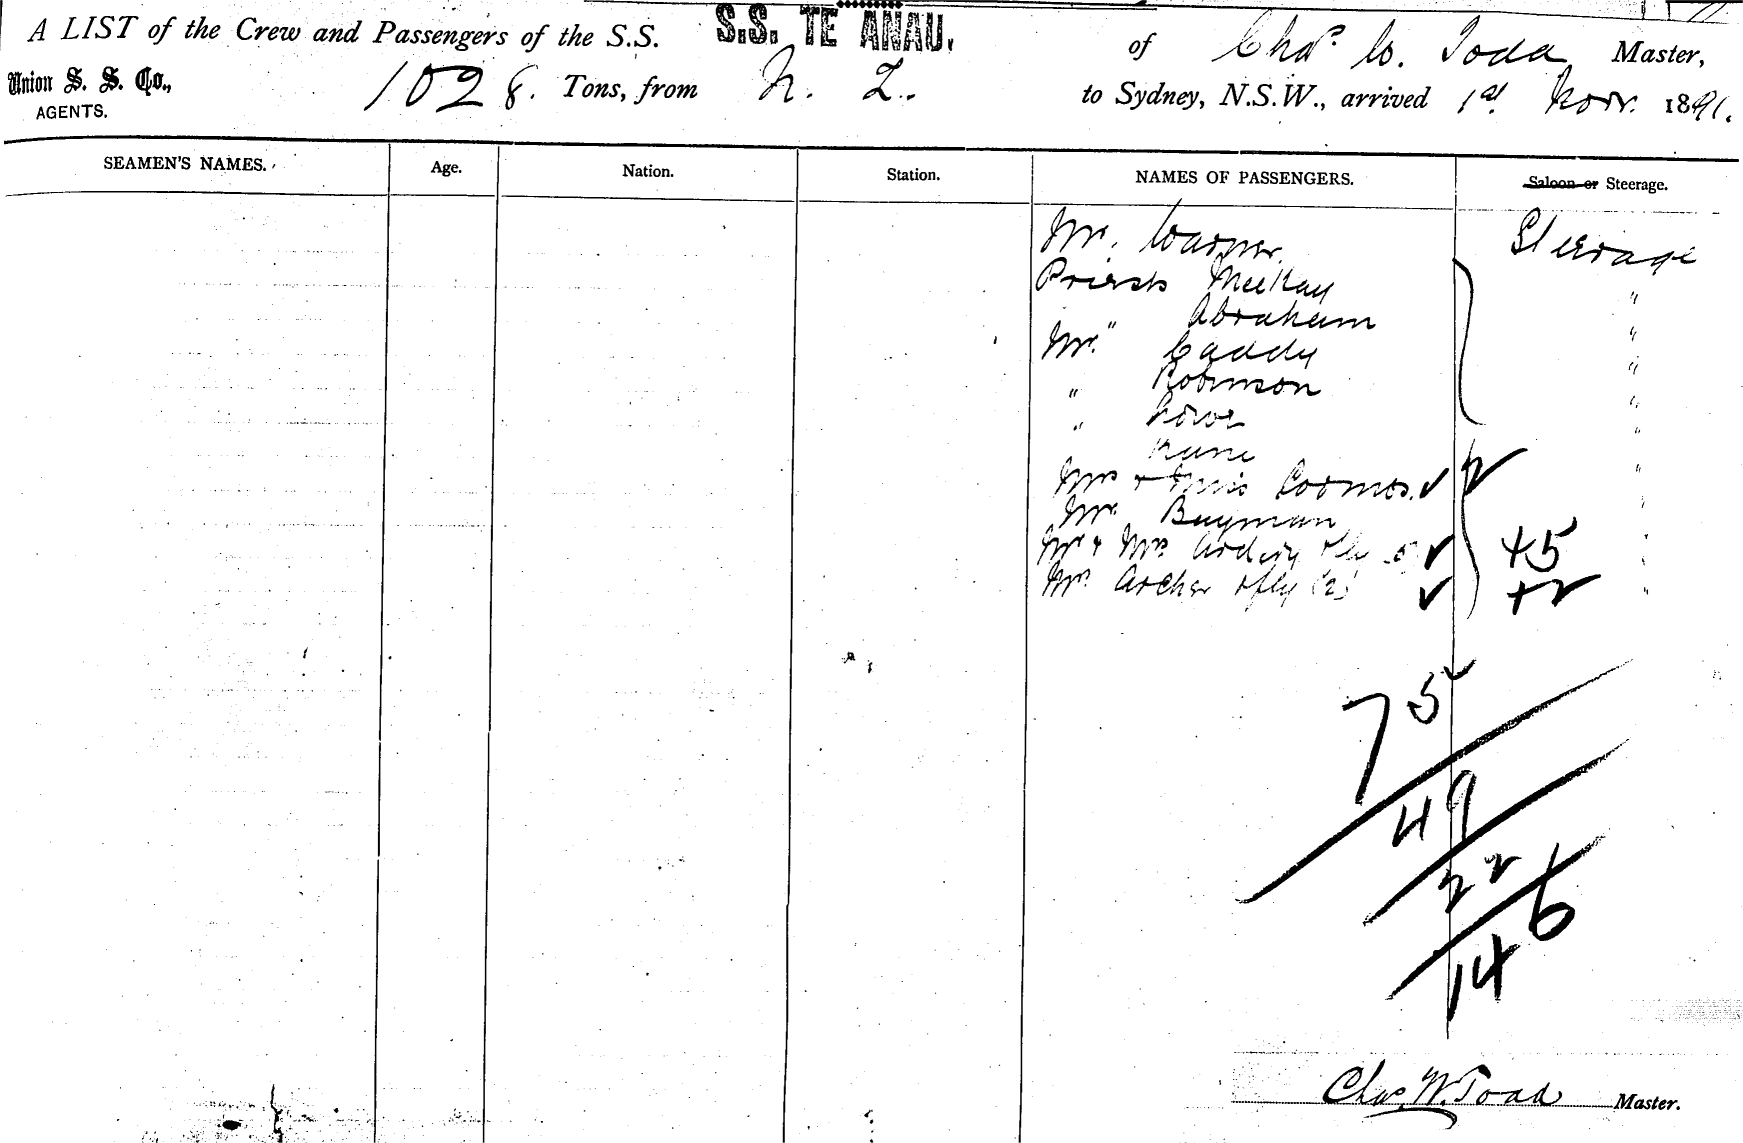 A LIST of the Crew and Passengers of the S.S. S.S. TE ANAU. of Chas. W. Todd Master,
Union S. S. Co., AGENTS. 1028. Tons, from N. Z. to Sydney, N.S.W., arrived 1st Novr. 1891.
SEAMEN'S NAMES. Age. Nation. Station. NAMES OF PASSENGERS. Saloon or Steerage.
Mr. Warner Steerage
Priests McKay "
" Abraham "
Mr. Caddy "
" Robinson "
" Lowe "
Kune "
Mrs & Miss
Mr. Bayman "
Mr & Mrs. +5
Mr. Archer & fly (2) +2 "
75
49
22
6
14
Chas. W. Todd Master.